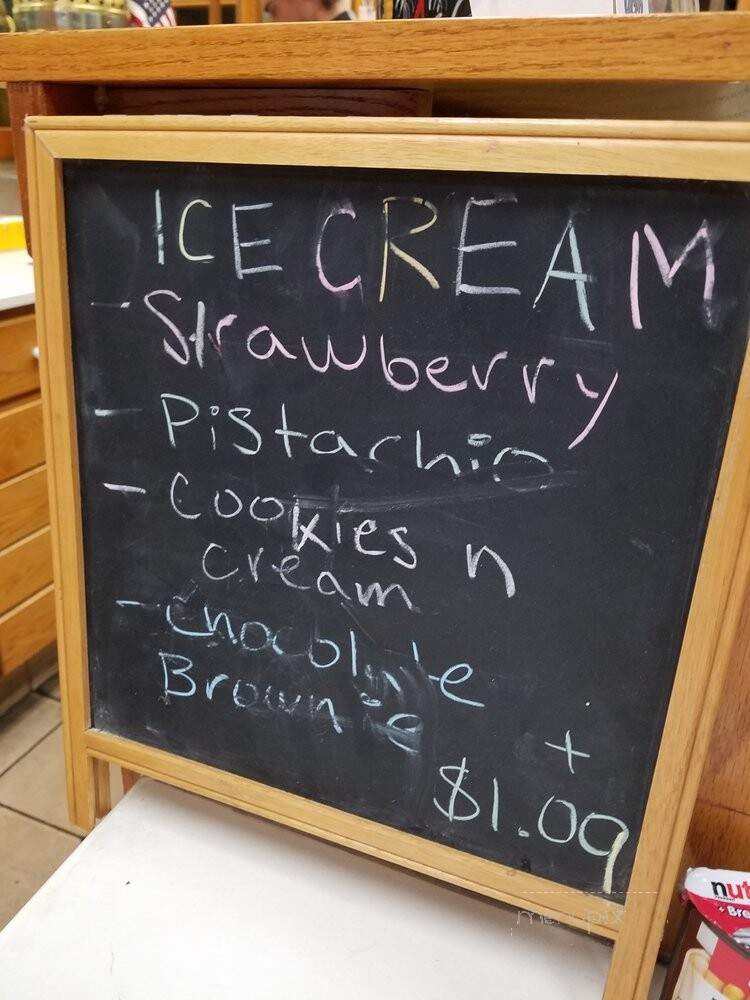 ICE CREAM
- Strawberry
- Pistachio
- Cookies n
cream
- chocolate
Brownie
+
$1.09
nut
+ Bre
menupix